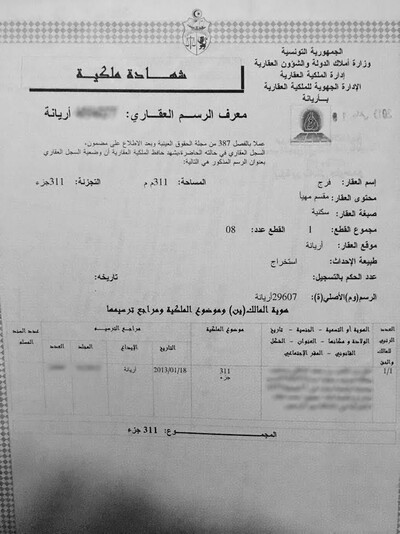 الجمهورية التونسية
وزارة أملاك الدولة والشؤون العقارية
إدارة الملكية العقارية
الإدارة الجهوية للملكية العقارية
بـأريانة
شهادة ملكية
معرف الرسم العقاري: أريانة
عملا بالفصل 387 من مجلة الحقوق العينية وبعد الاطلاع على مضمون،
السجل العقاري في حالته الحاضرة،يشهد حافظ الملكية العقارية أن وضعية السجل العقاري
بعنوان الرسم المذكور هي التالية:
إسم العقار: فرح المساحة: 311م م التجزئة: 311جزء
محتوى العقار: مقسم مهيأ
صبغة العقار: سكنية
مجموع القطع: 1 القطع عدد: 08
موقع العقار: أريانة
طبيعة الإحداث: استخراج
عدد الحكم بالتسجيل: تاريخه:
الرسم(وم)الأصلي(ة): 29607أريانة
هوية المالك(ين) وموضوع الملكية ومراجع ترسيمها
العدد الرتبي للمالك والحق
الهوية أو التسمية - الجنسية - تاريخ الولادة و مكانها - العنوان - الشكل القانوني - المقر الإجتماعي
موضوع الملكية
مراجع الترسيم
الإيداع التاريخ المجلد العدد
عدد السند السالم
1/1 311 جزء أريانة 2013/01/18
المجموع: 311 جزء